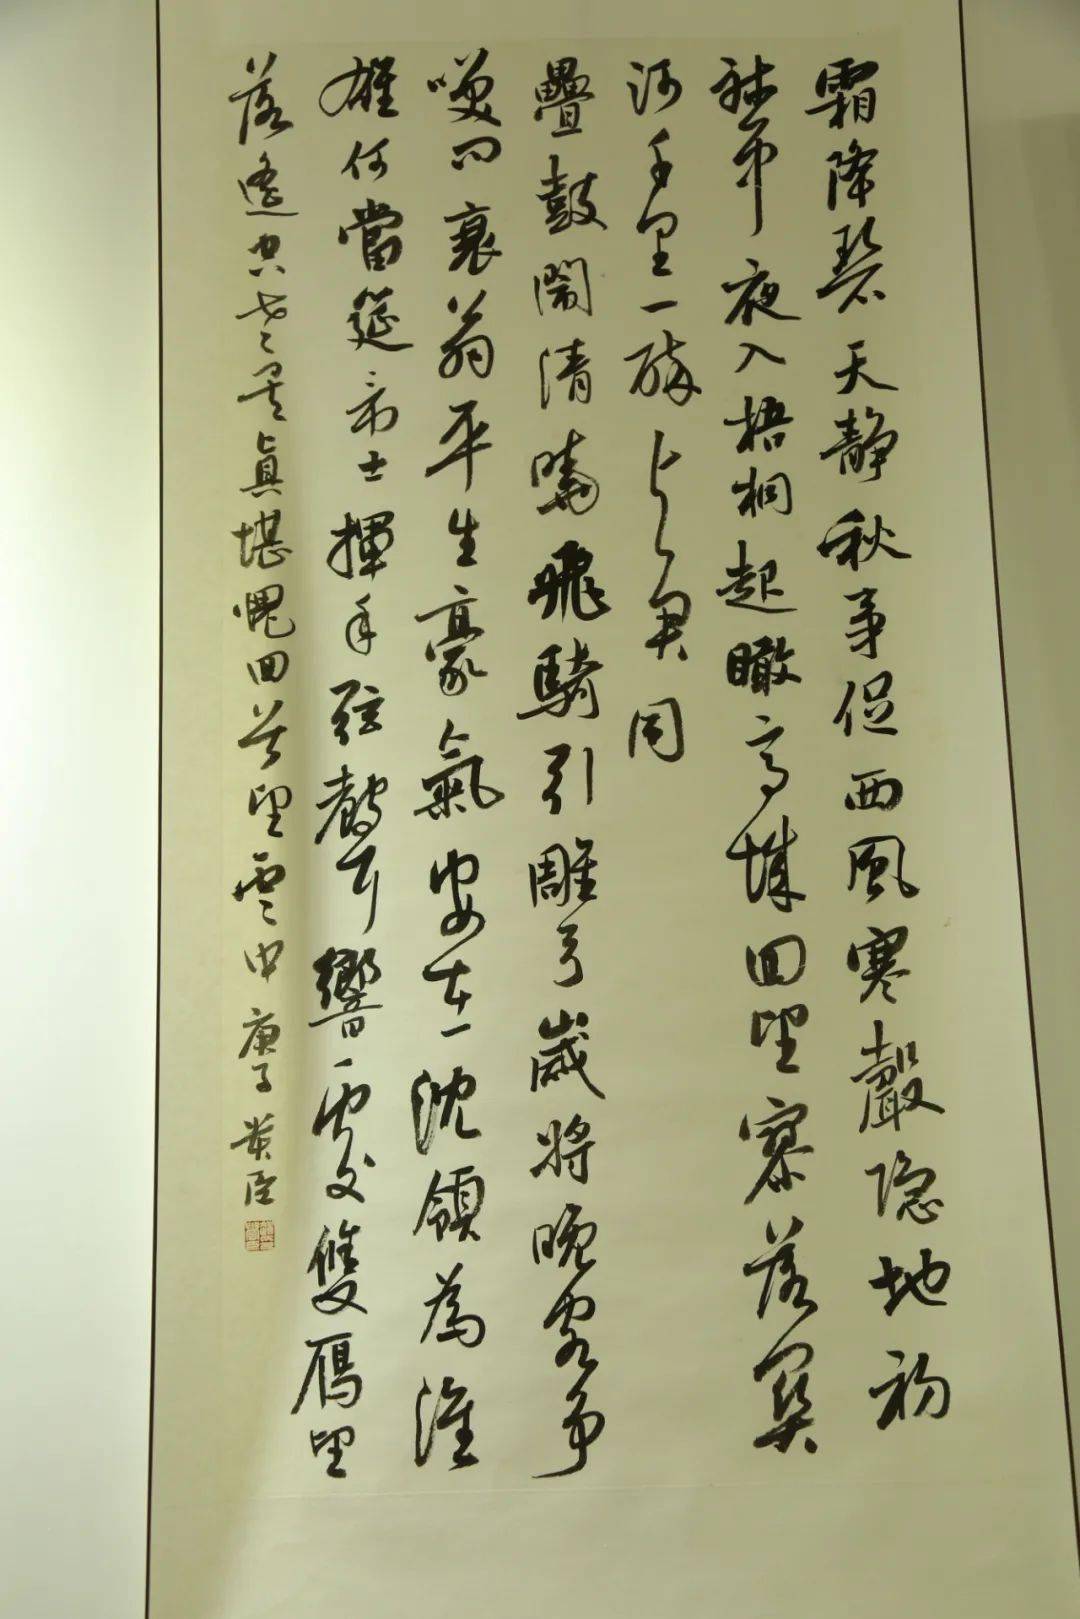 霜降碧天静秋事促西風寒聲隐地初
聽中夜入梧桐起瞰高城回望寥落関
河千里一醉与君同
疊鼓鬧清曉飛騎引雕弓歲將晚客争
笑問衰翁平生豪氣安在沈領為誰
雄何當筵虎士揮手弦聲響處雙雁望
落遥空老矣真堪愧回首望雲中 庚子